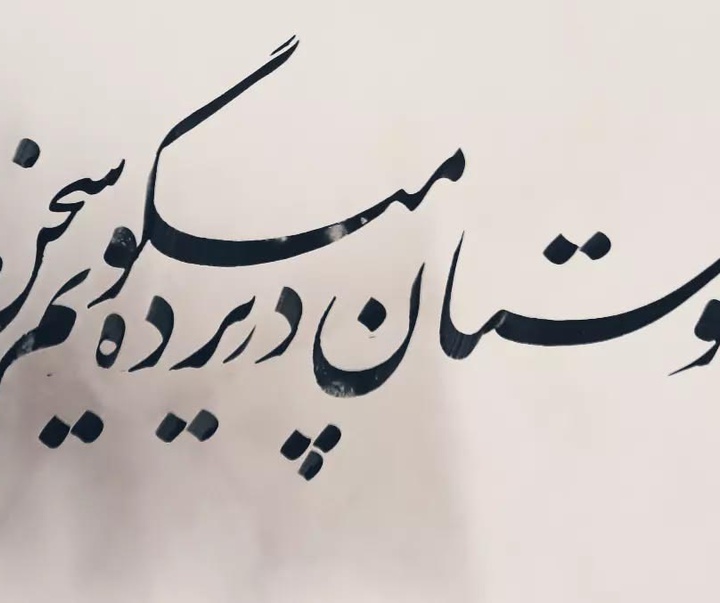 وستان در پرده میگویم سخن